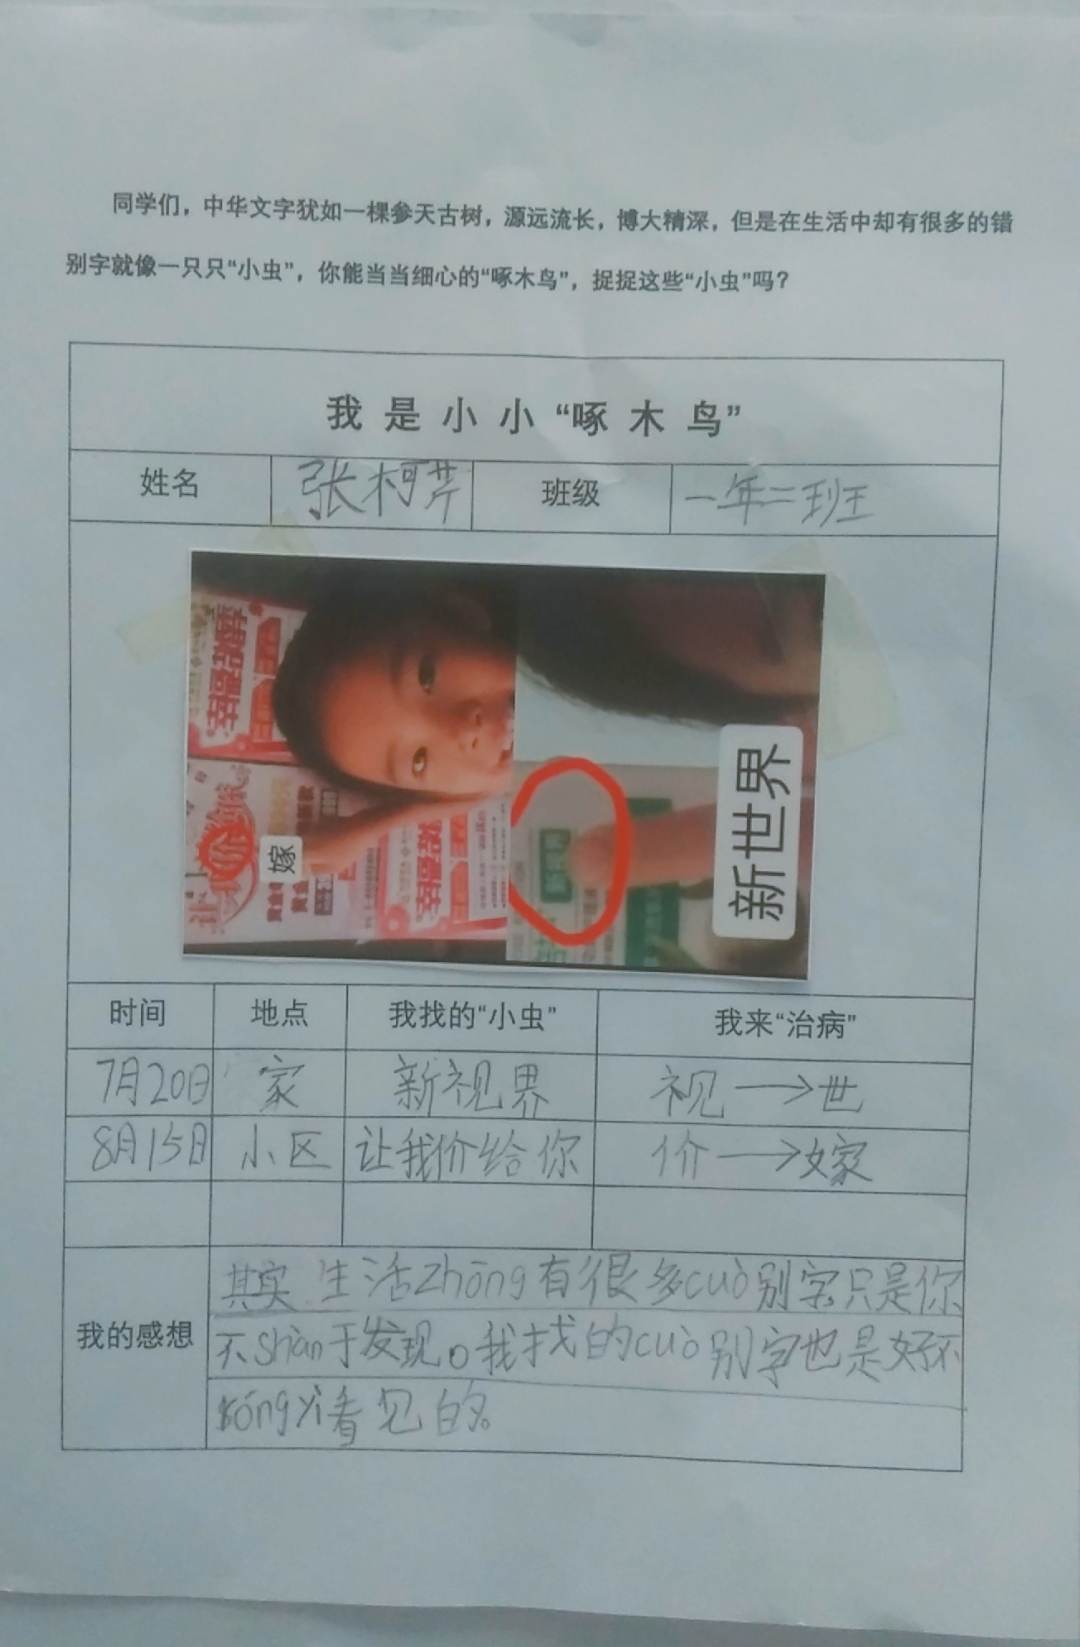 同学们，中华文字犹如一棵参天古树，源远流长，博大精深，但是在生活中却有很多的错
别字就像一只只“小虫”，你能当当细心的“啄木鸟”，捉捉这些“小虫”吗？
我是小小“啄木鸟”
姓名 张柯芹 班级 一年二班
嫁
新世界
时间 地点 我找的“小虫” 我来“治病”
7月20日 家 新视界 视→世
8月15日 小区 让我价给你 价→嫁
我的感想
其实生活zhōng有很多cuò别字只是你
不shàn于发现。我找的cuò别字也是好不
róngyì看见的。